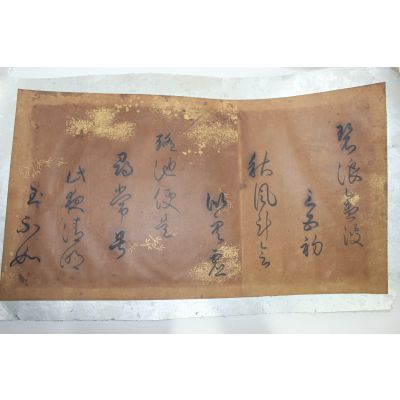 碧浪金波
三五初
秋風計会
似空虚
瑶池便是
尋常号
此夜清明
玉不如